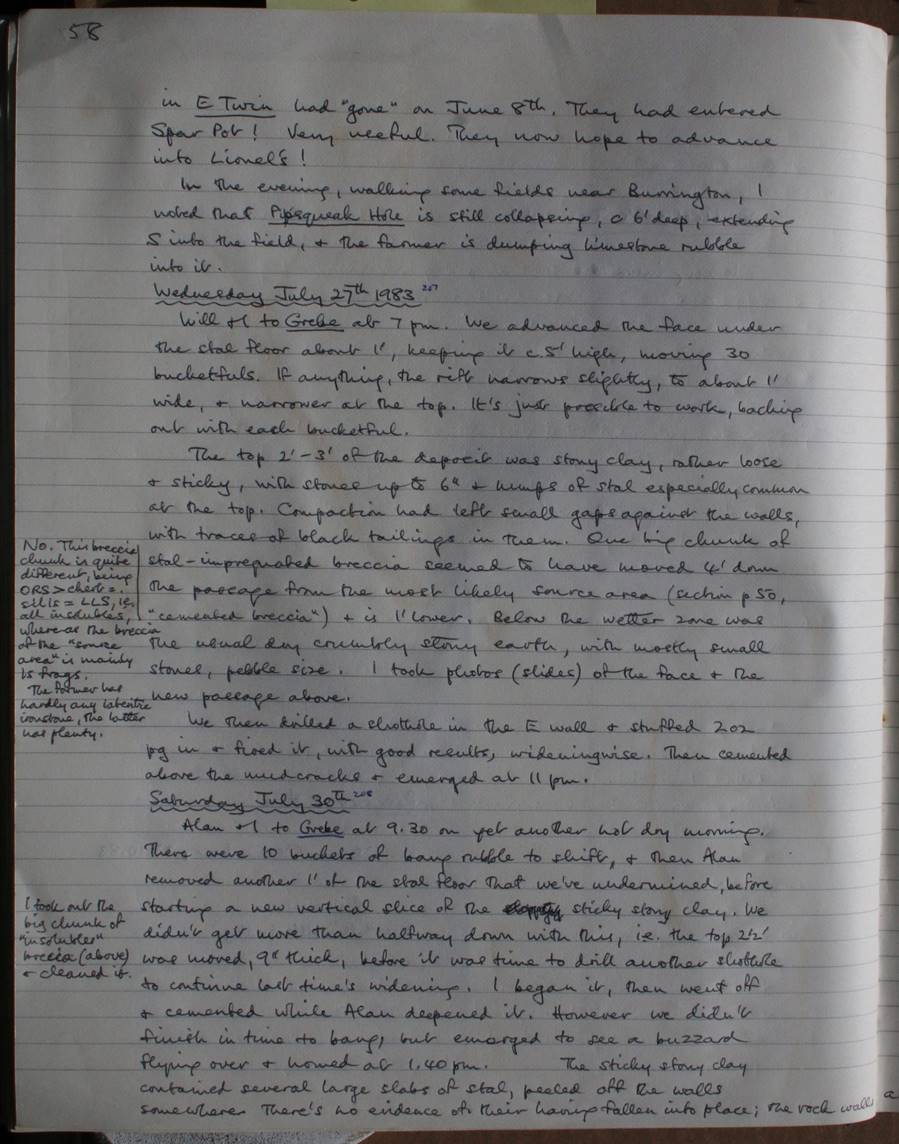 58
in E Twin had "gone" on June 8th. They had entered
Spar Pot! Very useful. They now hope to advance
into Lionel's!
In the evening, walking some fields near Burrington, I
noted that Pipsqueak Hole is still collapsing, c 6' deep, extending
S into the field, + the farmer is dumping limestone rubble
into it.
Wednesday July 27th 1983 207
Will + I to Grebe at 7 pm. We advanced the face under
the stal floor about 1', keeping it c. 5' high, moving 30
bucketfuls. If anything, the rift narrows slightly, to about 1'
wide, + narrower at the top. It's just possible to work, backing
out with each bucketful.
The top 2'-3' of the deposit was stony clay, rather loose
+ sticky, with stones up to 6" + lumps of stal especially common
at the top. Compaction had left small gaps against the walls,
with traces of black tailings in them. One big chunk of
stal-impregnated breccia seemed to have moved 4' down
the passage from the most likely source area (section p 50,
"cemented breccia") + is 1' lower. Below the wetter zone was
the usual dry crumbly stony earth, with mostly small
stones, pebble size. I took photos (slides) of the face + the
new passage above.
No. This breccia
chunk is quite
different, being
ORS > chert =
sil ls = LLS, i.e.
all insolubles,
whereas the breccia
of the "source
area" is mainly
ls frags.
The former has
hardly any lateritic
ironstone, the latter
has plenty.
We then drilled a shothole in the E wall + stuffed 2oz
pg in + fired it, with good results, wideningwise. Then cemented
above the mudcracks + emerged at 11 pm.
Saturday July 30th 208
Alan + I to Grebe at 9.30 on yet another hot dry morning.
There were 10 buckets of bang rubble to shift, + then Alan
removed another 1' of the stal floor that we've undermined, before
starting a new vertical slice of the sticky stony clay. We
didn't get more than halfway down with this, i.e. the top 2½'
was moved, 9" thick, before it was time to drill another shothole
to continue last time's widening. I began it, then went off
+ cemented while Alan deepened it. However we didn't
finish in time to bang, but emerged to see a buzzard
flying over + homed at 1.40 pm. The sticky stony clay
contained several large slabs of stal, peeled off the walls
somewhere. There's no evidence of their having fallen into place; the rock walls
I took out the
big chunk of
"insolubles"
breccia (above)
+ cleaned it.